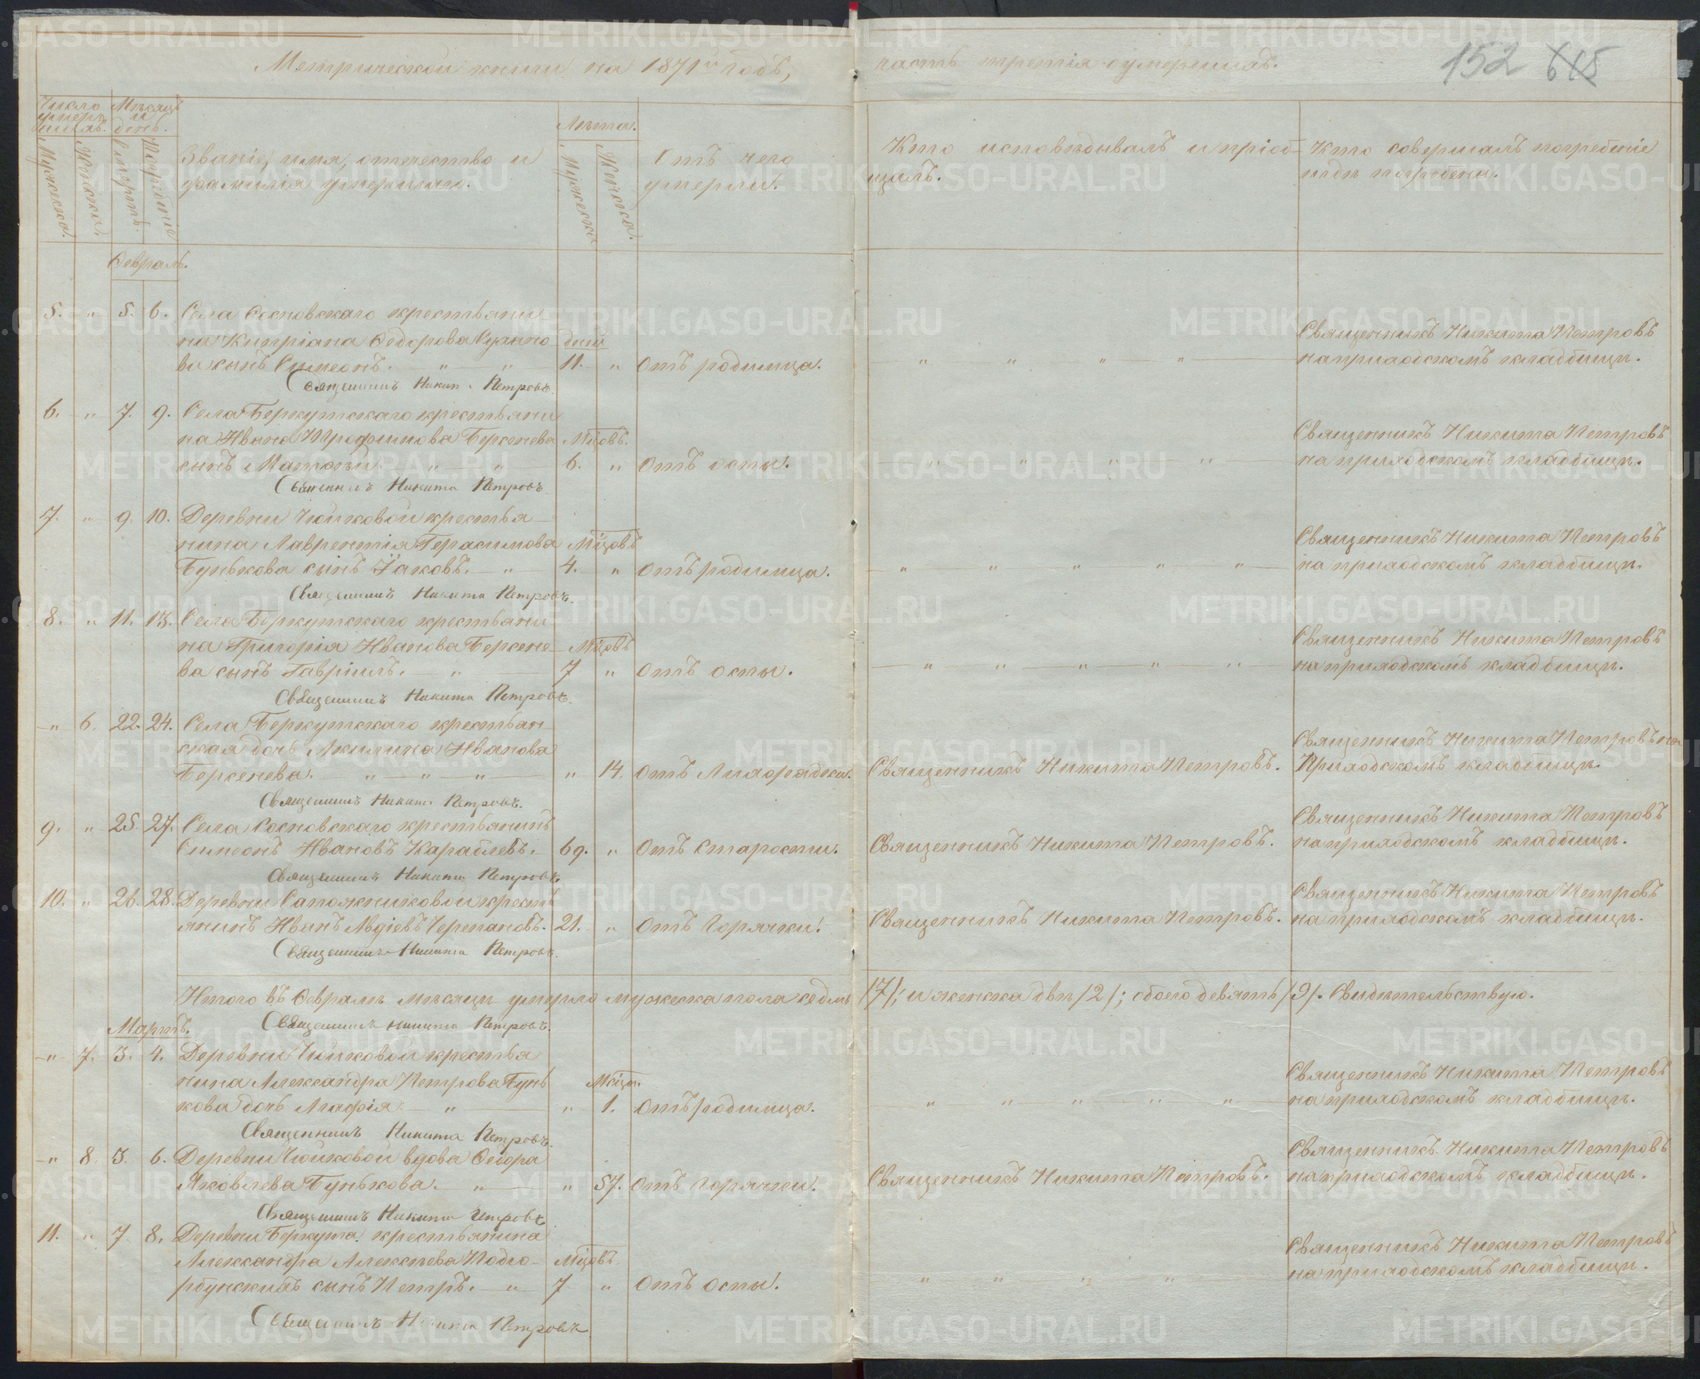 Метрической книги на 1871й годъ, часть третія о умершихъ.
152 615
Число умершихъ. Мѣсяцъ и день.
Мужеска. Женска. Смерть. Погребенія
Званіе, имя, отчество и фамилія умершихъ.
Лѣта.
Мужеска Женска.
Отъ чего умерли.
Кто исповѣдывалъ и пріобщалъ.
Кто совершалъ погребеніе и гдѣ погребены.
Февраль.
5. „ 5. 6. Села Сосновскаго крестьяни-
на Кипріана Федорова дней Священникъ Никита Петровъ
ва сынъ Симеонъ. „ „ 11. „ Отъ родимца. „ „ „ „ на приходскомъ кладбищѣ.
Священникъ Никита Петровъ
6. „ 7. 9. Села Беркутскаго крестьяни
на Ивана Трофимова Берсенева Мѣсцовъ. Священникъ Никита Петровъ
сынъ Матѳей. „ „ 6. „ Отъ оспы. „ „ „ „ на приходскомъ кладбищѣ.
Священникъ Никита Петровъ
7. „ 9. 10. Деревни Чюйковой крестья
нина Лаврентія Герасимова Мѣсцовъ Священникъ Никита Петровъ
Бунькова сынъ Іаковъ. „ 4. „ Отъ родимца. „ „ „ „ „ на приходскомъ кладбищѣ.
Священникъ Никита Петровъ.
8. „ 11. 13. Села Беркутскаго крестьяни
на Григорія Иванова Берсене- Мѣсцовъ Священникъ Никита Петровъ
ва сынъ Гавріилъ. „ 7 „ Отъ оспы. „ „ „ „ „ на приходскомъ кладбищѣ.
Священникъ Никита Петровъ.
„ 6 22. 24. Села Беркутскаго крестьян-
ская дочь Акилина Иванова Священникъ Никита Петровъ на
Берсенева. „ „ „ „ 14 Отъ Лихорадки. Священникъ Никита Петровъ. Приходскомъ кладбищѣ.
Священникъ Никита Петровъ.
9. „ 25 27. Села Сосновскаго крестьянинъ Священникъ Никита Петровъ
Симеонъ Ивановъ Карабаевъ. 69. „ Отъ Старости. Священникъ Никита Петровъ. на приходскомъ кладбищѣ.
Священникъ Никита Петровъ.
10. „ 26. 28. Деревни Сапожниковой кресть Священникъ Никита Петровъ
янинъ Иванъ Авдіевъ 21. „ Отъ Горячки. Священникъ Никита Петровъ. на приходскомъ кладбищѣ.
Священникъ Никита Петровъ.
Итого въ Февралѣ мѣсяцѣ умерло мужеска пола седмь /7/; и женска двѣ /2/; обоего девять /9/. Свидѣтельствую.
Священникъ Никита Петровъ.
Мартъ.
„ 7. 3. 4. Деревни Чюйковой крестья
нина Александра Петрова Бунь Мѣсцъ. Священникъ Никита Петровъ
кова дочь Агафія „ „ 1. Отъ родимца. „ „ „ „ „ на приходскомъ кладбищѣ.
Священникъ Никита Петровъ.
„ 8 3. 6. Деревни Чюйковой вдова Федора Священникъ Никита Петровъ
Яковлева Бунькова. „ „ 57. Отъ Горячки. Священникъ Никита Петровъ. на приходскомъ кладбищѣ.
Священникъ Никита Петровъ
11. „ 7 8. Деревни Беркута крестьянина
Александра Алексѣева Подго- Мѣсцовъ Священникъ Никита Петровъ
рбунскихъ сынъ Петръ. „ 7 „ Отъ Оспы. „ „ „ „ на приходскомъ кладбищѣ.
Священникъ Никита Петровъ
METRIKI.GASO-URAL.RU